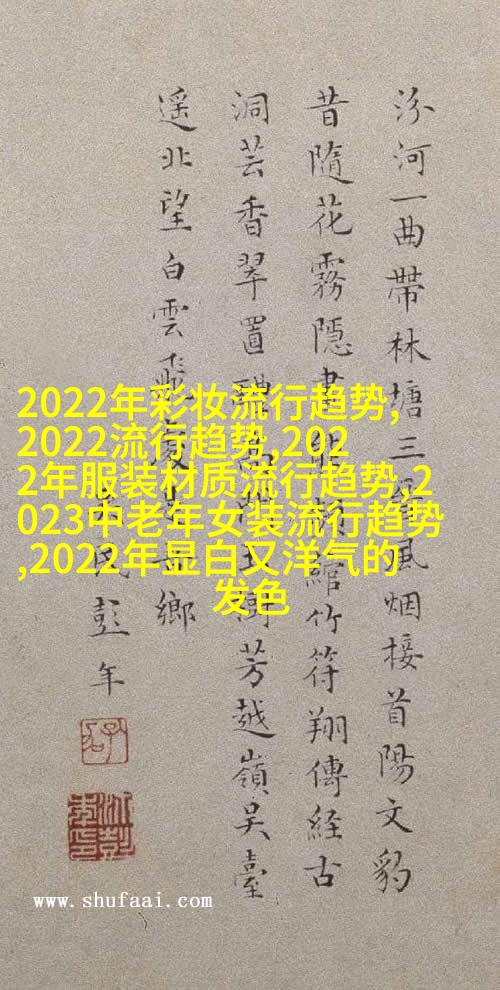 2022年彩妆流行趋势,
2022流行趋势,202
2年服装材质流行趋势,2
023中老年女装流行趋势
,2022年显白又洋气的
发色
汾河一曲帶林塘三風烟接首陽文豹
昔隨花霧隱書綰竹符翔傳經古
洞芸香翠置芳越嶺吳臺
遥北望白雲飛鄉
民彭年
www.shufaai.com